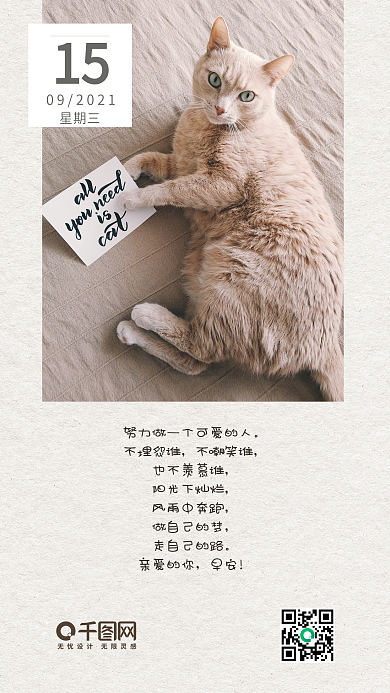 15
09/2021
星期三
all
you need
is
cat
努力做一个可爱的人。
不埋怨谁，不嘲笑谁，
也不羡慕谁，
阳光下灿烂，
风雨中奔跑，
做自己的梦，
走自己的路。
亲爱的你，早安！
千图网
无忧设计·无限灵感